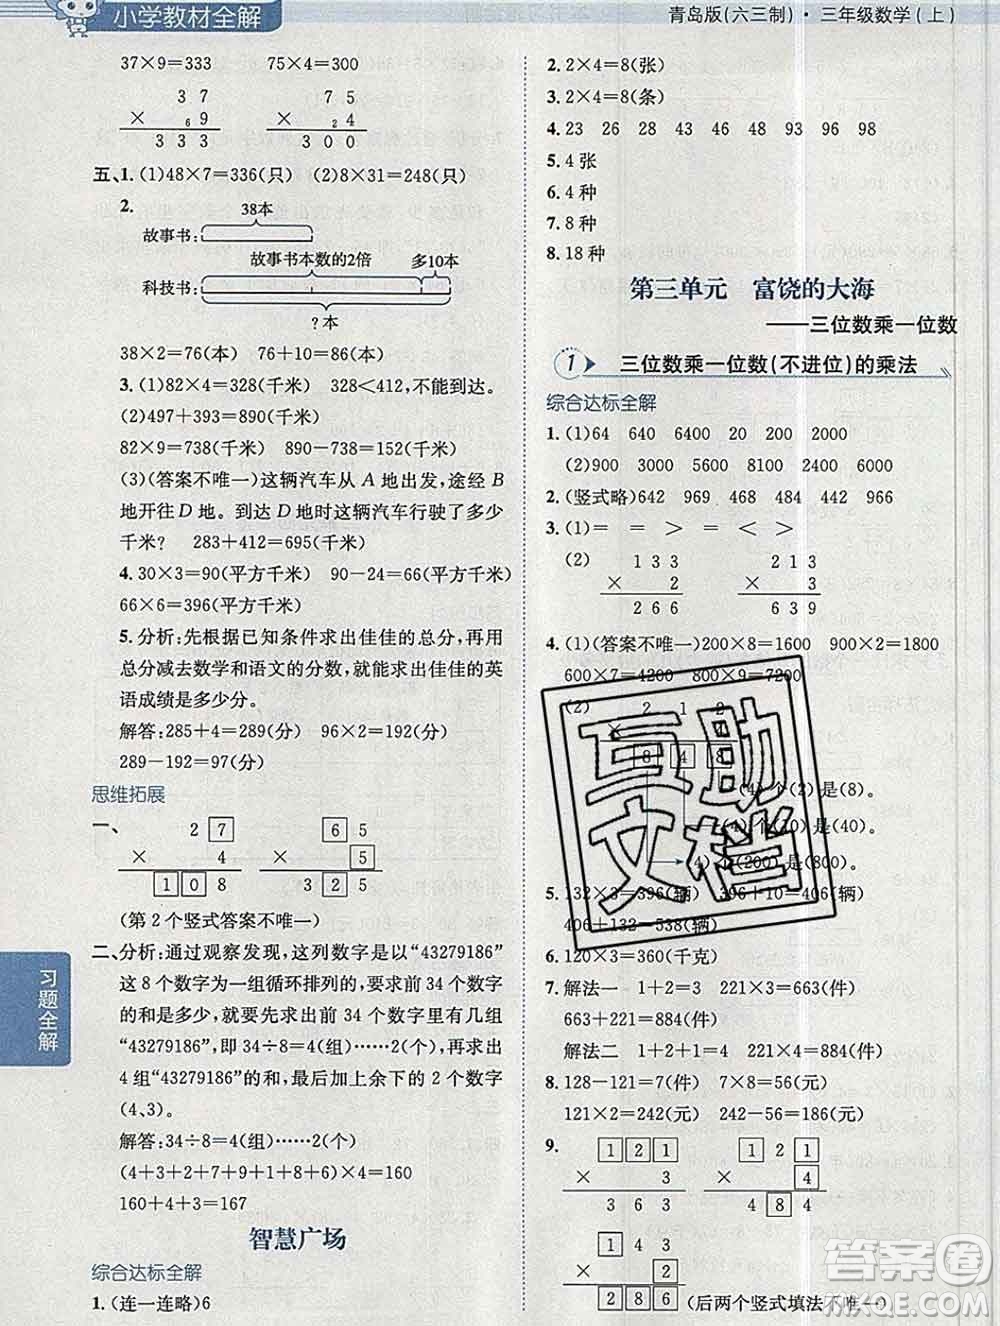 小学教材全解
青岛版(六三制)·三年级数学(上)
37×9=333 75×4=300
3 7 7 5
× 6 9 × 2 4
3 3 3 3 0 0
五、1. (1)48×7=336(只) (2)8×31=248(只)
2.
38本
故事书:
故事书本数的2倍 多10本
科技书:
?本
38×2=76(本) 76+10=86(本)
3. (1)82×4=328(千米) 328<412,不能到达。
(2)497+393=890(千米)
82×9=738(千米) 890-738=152(千米)
(3)(答案不唯一)这辆汽车从A地出发,途经B
地开往D地。到达D地时这辆汽车行驶了多少
千米? 283+412=695(千米)
4. 30×3=90(平方千米) 90-24=66(平方千米)
66×6=396(平方千米)
5. 分析:先根据已知条件求出佳佳的总分,再用
总分减去数学和语文的分数,就能求出佳佳的英
语成绩是多少分。
解答:285+4=289(分) 96×2=192(分)
289-192=97(分)
思维拓展
一、 2 7 6 5
× 4 × 5
1 0 8 3 2 5
(第2个竖式答案不唯一)
二、分析:通过观察发现,这列数字是以“43279186”
这8个数字为一组循环排列的。要求前34个数字
的和是多少,就要先求出前34个数字里有几组
“43279186”,即34÷8=4(组)……2(个),再求出
4组“43279186”的和,最后加上余下的2个数字
(4、3)。
解答:34÷8=4(组)……2(个)
(4+3+2+7+9+1+8+6)×4=160
160+4+3=167
智慧广场
综合达标全解
1. (连一连略)6
习题全解
2. 2×4=8(张)
3. 2×4=8(条)
4. 23 26 28 43 48 93 96 98
5. 4张
6. 4种
7. 8种
8. 18种
第三单元 富饶的大海
——三位数乘一位数
1 三位数乘一位数(不进位)的乘法
综合达标全解
1. (1)64 640 6400 20 200 2000
(2)900 3000 600 2800 7200 6000
2. (竖式略)642 969 468 484 442 966
3. (1)= = > = < >
(2) 1 3 3 2 1 3
× 2 × 3
2 6 6 6 3 9
4. (1)(答案不唯一)200×8=1600 900×2=1800
600×7=4200 800×9=7200
(2) 2 1 2
8 4 8
(4)个(2)是(8)。
(4)个(10)是(40)。
(4)个(200)是(800)。
互助
文档
5. 132×3=396(辆) 396+10=406(辆)
406+132=538(辆)
6. 120×3=360(千克)
7. 解法一 1+2=3 221×3=663(件)
663+221=884(件)
解法二 1+2+1=4 221×4=884(件)
8. 128-121=7(件) 7×8=56(元)
121×2=242(元) 242-56=186(元)
9. 1 2 1 1 2 1
× 3 × 4
3 6 3 4 8 4
1 4 3
× 2
2 8 6 (后两个竖式填法不唯一)
答案圈